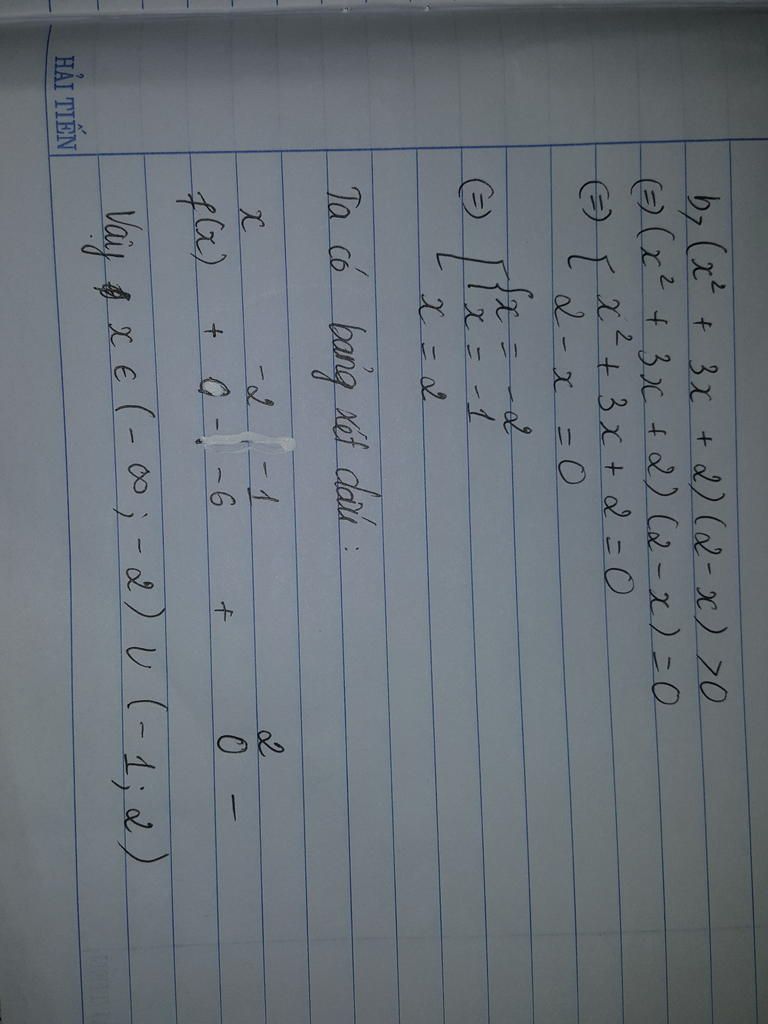 HẢI TIẾN
b, (x² + 3x + 2)(2 - x) > 0
(=) (x² + 3x + 2)(2 - x) = 0
(=) [ x² + 3x + 2 = 0
2 - x = 0
(=) [ { x = -2
x = -1
x = 2
Ta có bảng xét dấu:
x -2 -1 2
f(x) + 0 - -6 + 0 -
Vậy x ∈ (-∞; -2) ∪ (-1; 2)